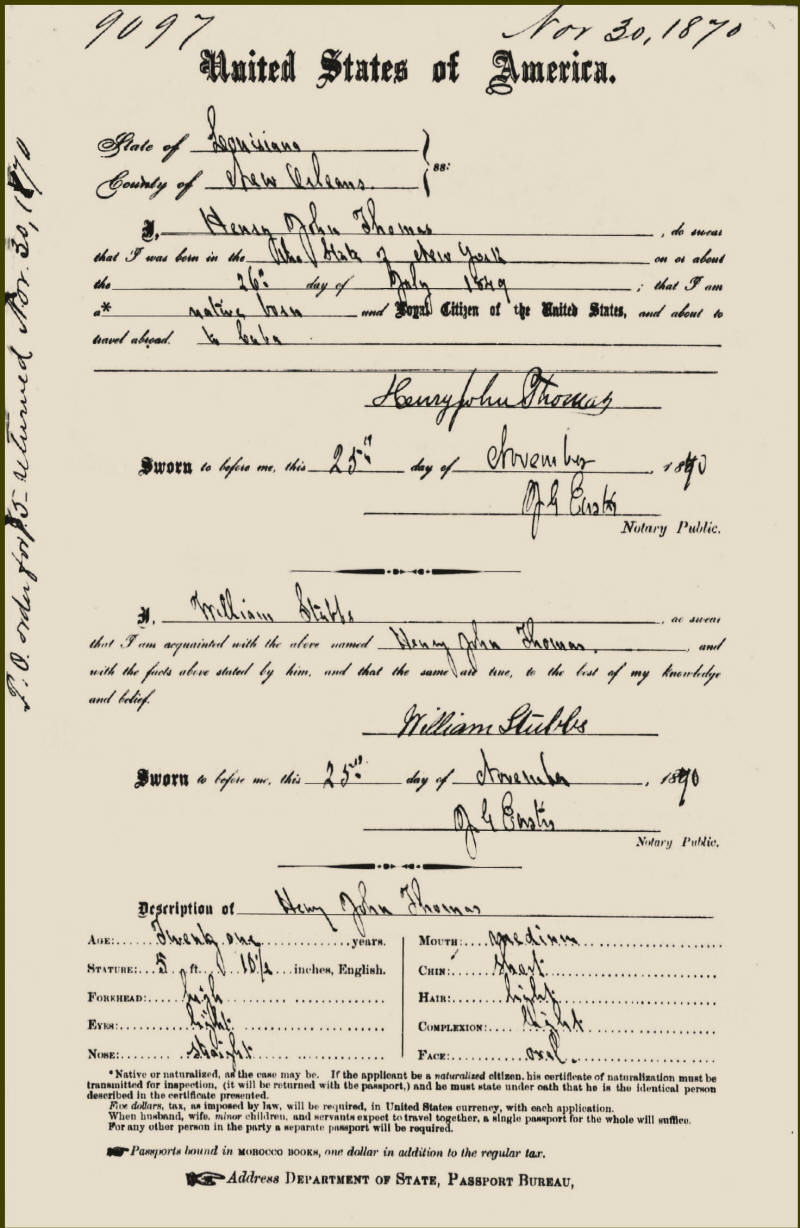 9097 Nov 30, 1870
United States of America.
State of Louisiana
County of New Orleans. } ss:
I, Henry John Thomas, do swear
that I was born in the State of New York on or about
the 26th day of July 1849; that I am
a* native born and Loyal Citizen of the United States, and about to
travel abroad. to Cuba
Henry John Thomas
Sworn to before me, this 25th day of November, 1870
Notary Public.
I, William Stubbs, do swear
that I am acquainted with the above named Henry John Thomas, and
with the facts above stated by him, and that the same are true, to the best of my knowledge
and belief.
William Stubbs
Sworn to before me, this 25th day of November, 1870
Notary Public.
Description of Henry John Thomas
AGE: Twenty one years.
STATURE: 5 ft. 10 1/2 inches, English.
FOREHEAD: high
EYES: light
NOSE: straight
MOUTH: medium
CHIN:
HAIR: light
COMPLEXION: light
FACE: oval.
*Native or naturalized, as the case may be. If the applicant be a naturalized citizen, his certificate of naturalization must be
transmitted for inspection, (it will be returned with the passport,) and he must state under oath that he is the identical person
described in the certificate presented.
Five dollars, tax, as imposed by law, will be required, in United States currency, with each application.
When husband, wife, minor children, and servants expect to travel together, a single passport for the whole will suffice.
For any other person in the party a separate passport will be required.
Passports bound in MOROCCO BOOKS, one dollar in addition to the regular tax.
Address DEPARTMENT OF STATE, PASSPORT BUREAU,
P. O. order for $5- returned Nov. 30, 1870